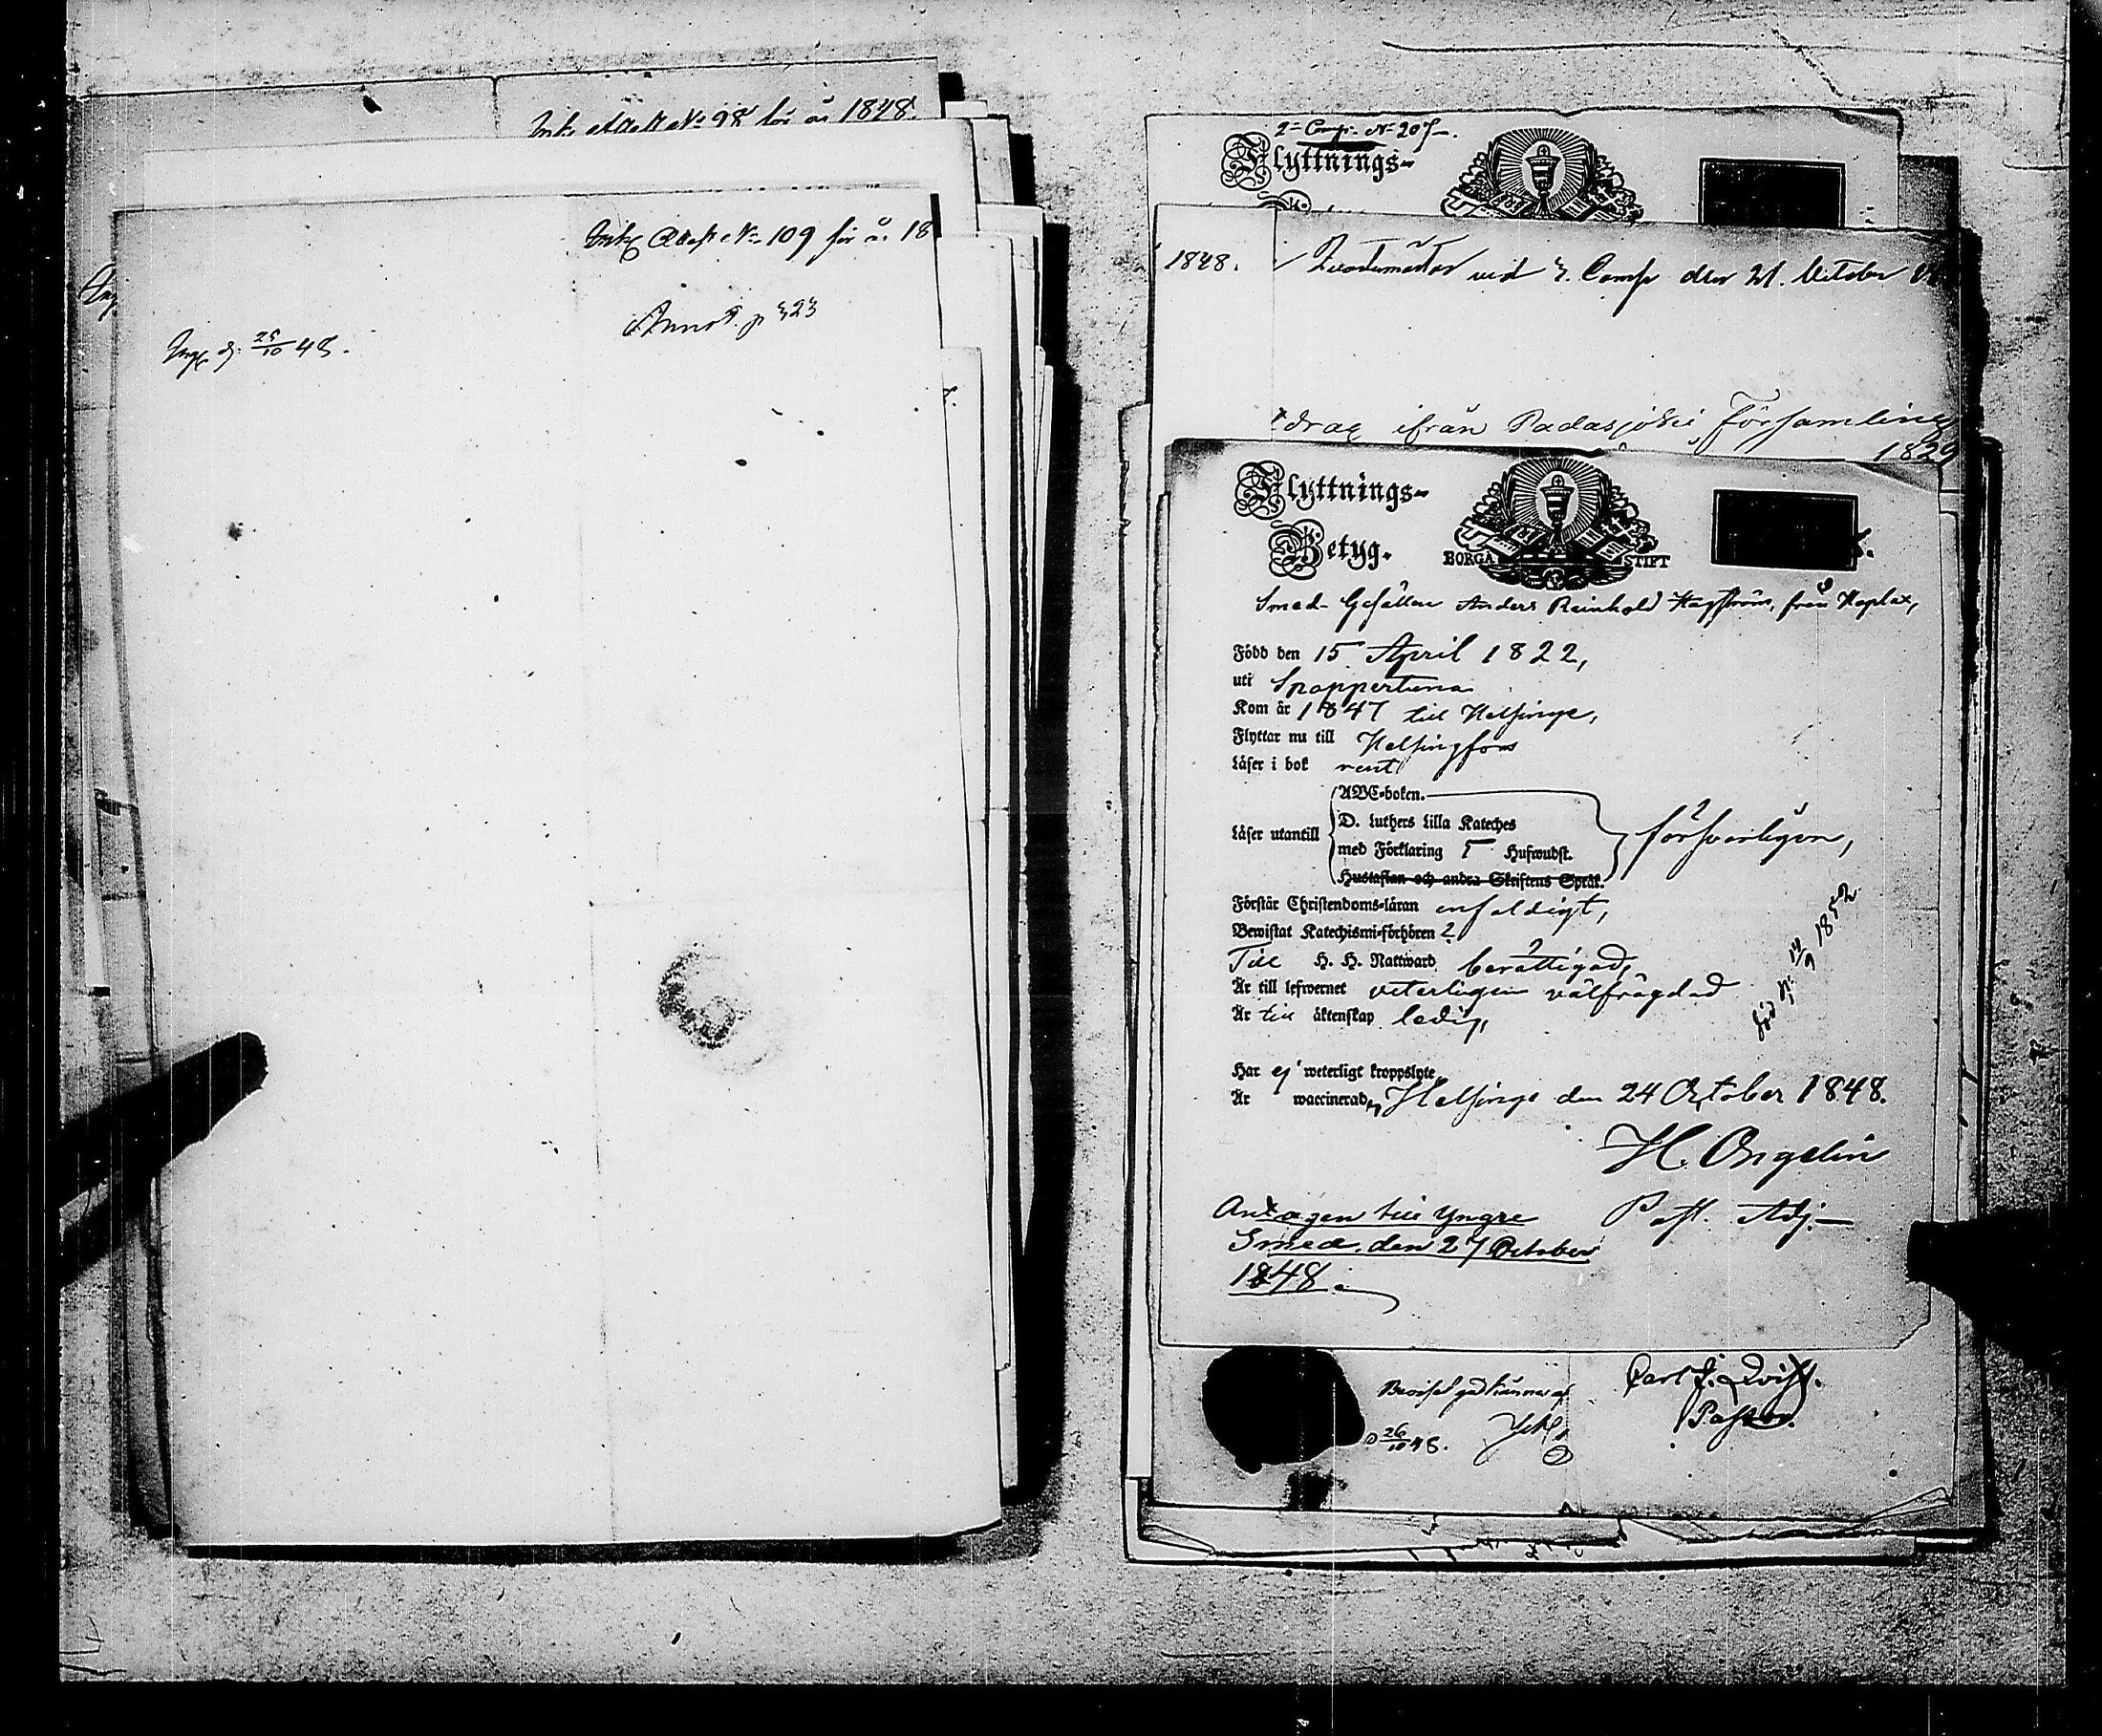 Ink. Attest No 98 för år 1848.
Ink. Attest No 109 för år 18
Annot. p 323
Ink d. 25/10 48.
2= Comp. No 207.
Flyttnings-
1848.
vid 3. Comp den 21. October
drag ifrån Padasjoki Församling
1829
Flyttnings-
Betyg.
BORGÅ STIFT
Smed-Gesällen Anders Reinhold Hagström, från Hoplax,
Född den 15 April 1822,
uti Snappertuna
Kom år 1847 till Helsinge,
Flyttar nu till Helsingfors
Läser i bok rent
ABC-boken.
D. Luthers Lilla Kateches
Läser utantill
med Förklaring 5 Hufwudst.
försvarligen,
Hustaflan och andra Skriftens Språk.
Förstår Christendoms-läran enfaldigt,
Bewistat Katechismi-förhören 2
Till H. H. Nattward berättigad,
Är till lefwernet veterligen välfrägdad
Är till äktenskap ledig,
död d. 14/9 1852
Har ej weterligt kroppslyte,
Är waccinerad, Helsinge den 24 October 1848.
H. Ongelin
Past. Adj.
Antagen till Yngre
Smed. den 27 October
1848
Carl J. Qvist.
Pastor.
26/10 48.